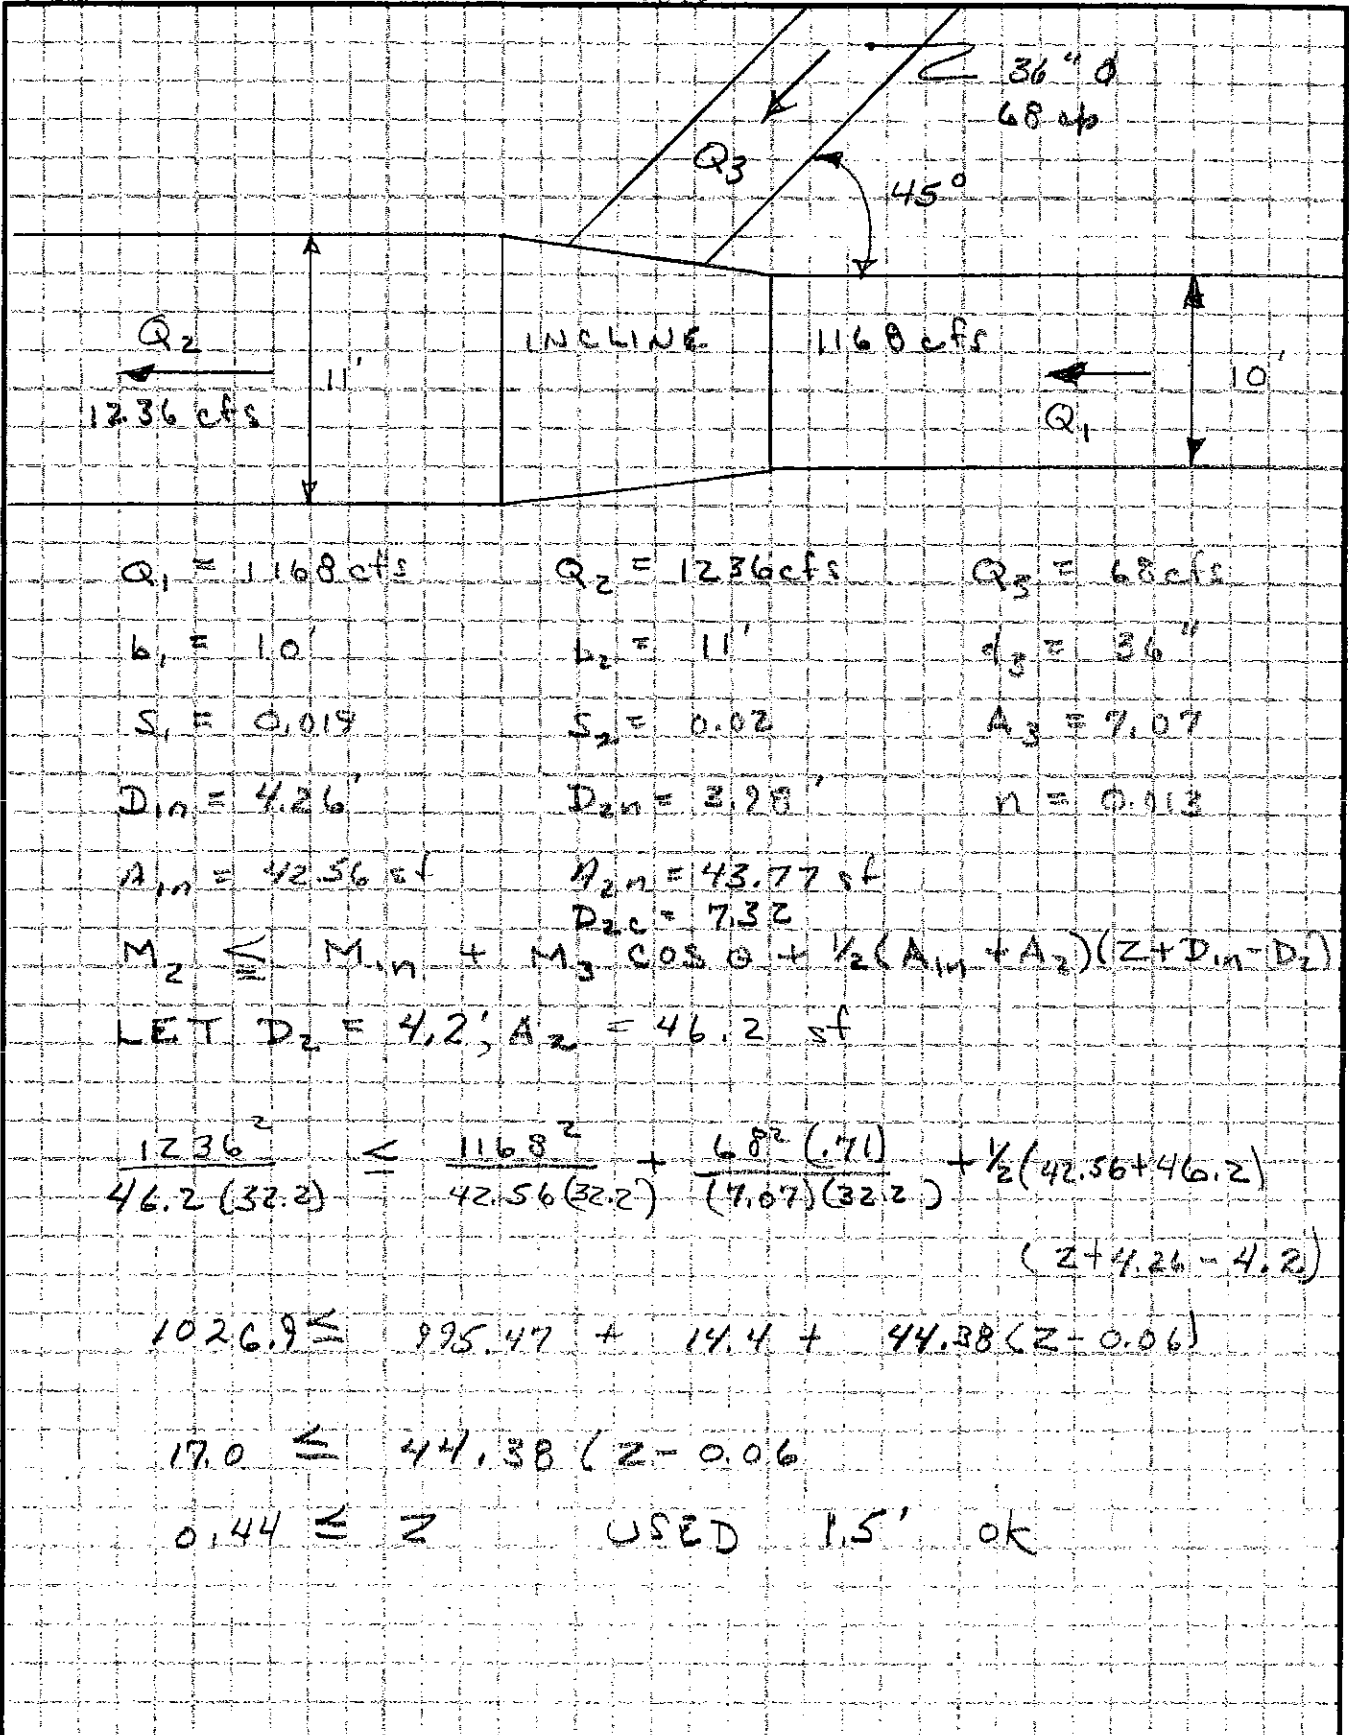 36" Ø
68 cfs
Q3
45°
Q2
INCLINE
1168 cfs
11'
10'
1236 cfs
Q1
Q1 = 1168 cfs Q2 = 1236 cfs Q3 = 68 cfs
b1 = 10' b2 = 11' d3 = 36"
S1 = 0.019 S2 = 0.02 A3 = 7.07
D1n = 4.26' D2n = 3.98' n = 0.013
A1n = 42.56 sf A2n = 43.77 sf
D2c = 7.32
M2 ≦ M1n + M3 cos θ + 1/2(A1n + A2)(Z + D1n - D2)
LET D2 = 4.2', A2 = 46.2 sf
1236²/46.2(32.2) ≦ 1168²/42.56(32.2) + 68²(.71)/(7.07)(32.2) + 1/2(42.56+46.2)
(Z+4.26-4.2)
1026.9 ≦ 995.47 + 14.4 + 44.38(Z-0.06)
17.0 ≦ 44.38(Z-0.06
0.44 ≦ Z USED 1.5' OK